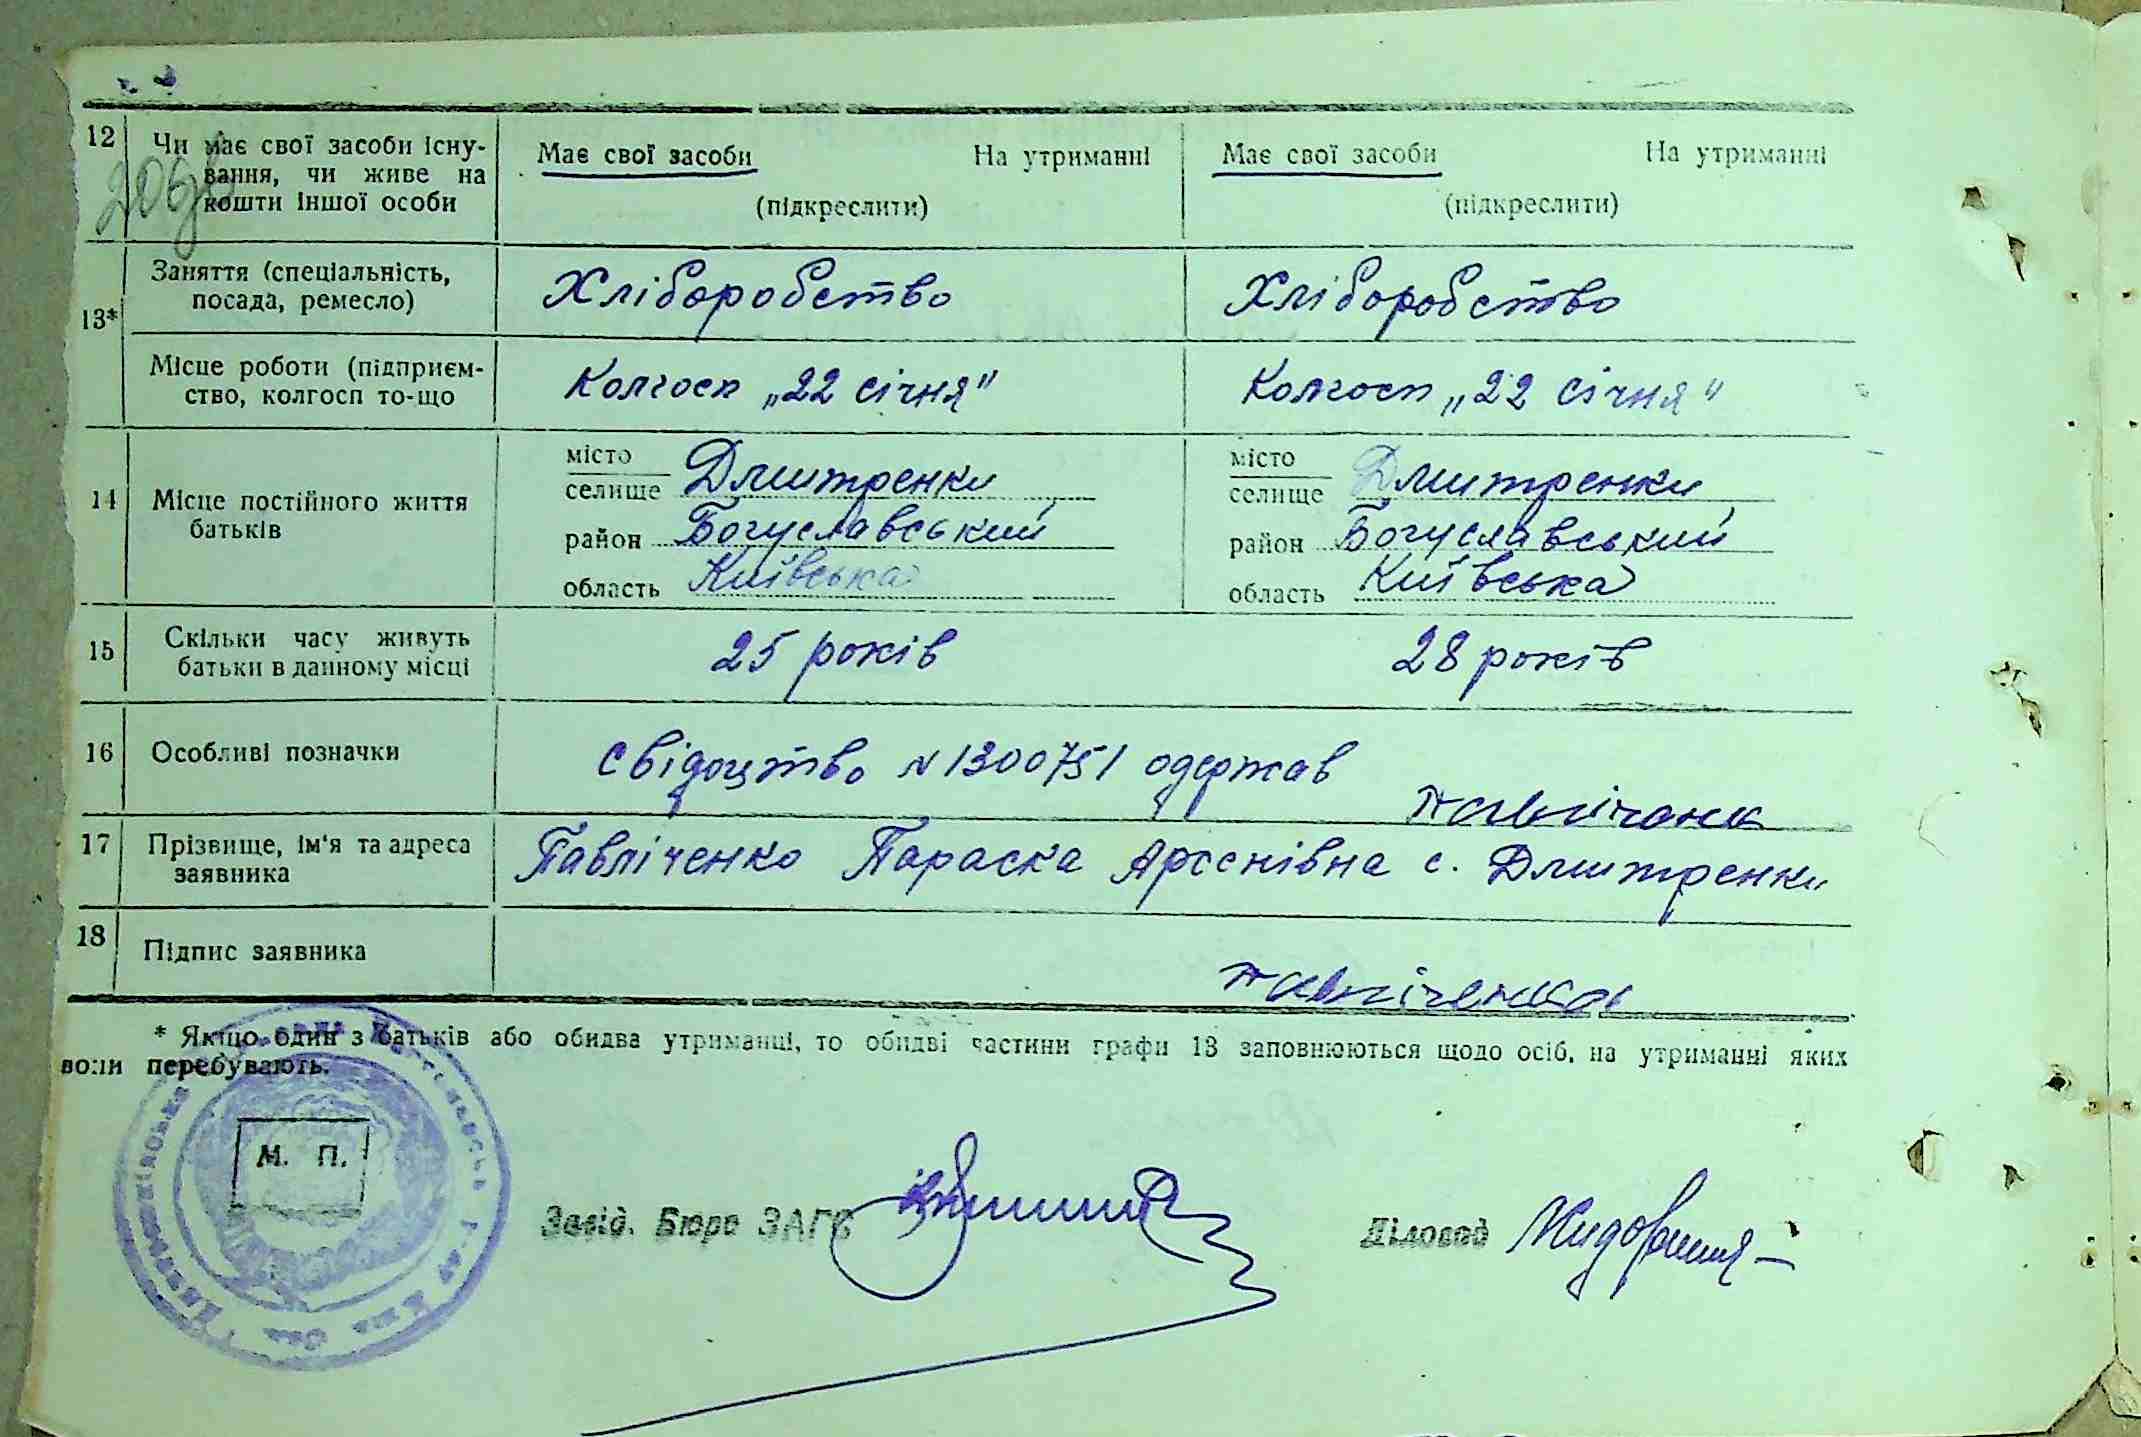 12 Чи має свої засоби існу-
вання, чи живе на
кошти іншої особи
206
Має свої засоби На утриманні
(підкреслити)
Має свої засоби На утриманні
(підкреслити)
13* Заняття (спеціальність,
посада, ремесло)
Хліборобство
Хліборобство
Місце роботи (підприєм-
ство, колгосп то-що
Колгосп „22 січня"
Колгосп „22 січня"
14 Місце постійного життя
батьків
місто
селище Дмитренки
район Богуславський
область Київська
місто
селище Дмитренки
район Богуславський
область Київська
15 Скільки часу живуть
батьки в данному місці
25 років
28 років
16 Особливі позначки
Свідоцтво N 1300751 одержав
17 Прізвище, ім'я та адреса
заявника
Павліченко Параска Арсенівна с. Дмитренки
18 Підпис заявника
Павліченко
* Якщо один з батьків або обидва утриманці, то обидві частини графи 13 заповнюються щодо осіб, на утриманні яких
вони перебувають.
М. П.
Завід. Бюро ЗАГС
Діловод